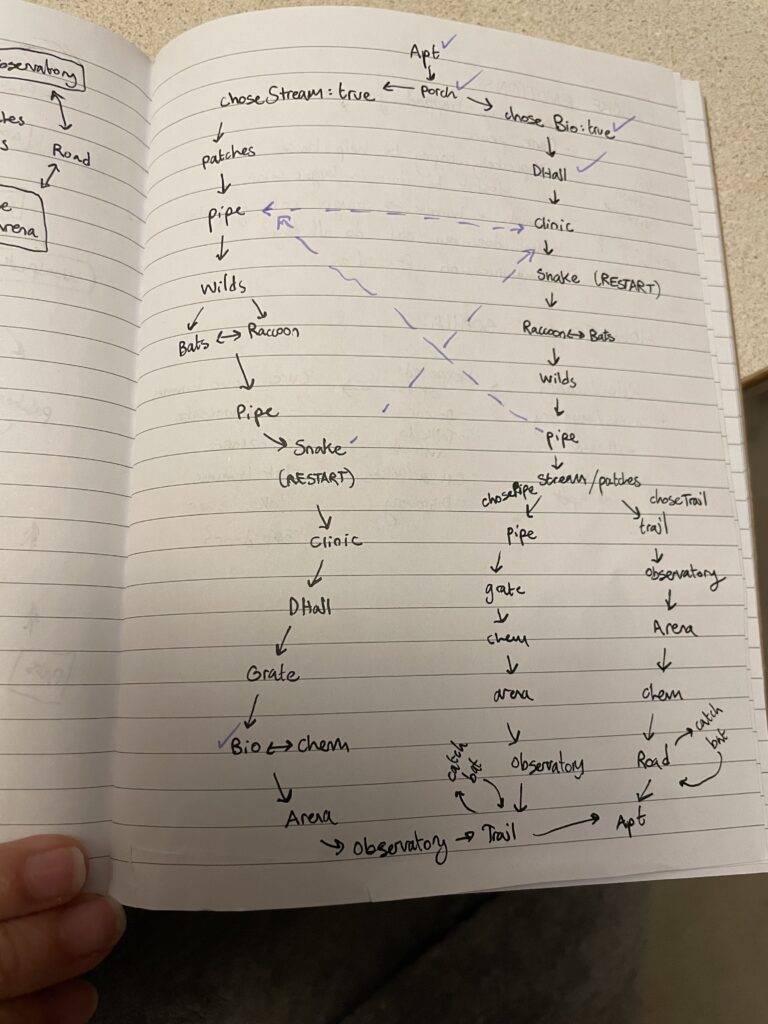 observatory
Road
Arena
Apt ✓
↓
choseStream: true ← porch ✓ → chose Bio: true ✓
patches
DHall ✓
pipe
Clinic
Snake (RESTART)
wilds
Bats ↔ Raccoon
Raccoon ↔ Bats
wilds
Pipe
pipe
Snake ✓
(RESTART)
stream/patches
chosePipe
choseTrail
pipe
trail
Clinic
grate
observatory
DHall
chem
Arena
Grate
arena
chem
✓ Bio ↔ Chem
catch bat
Observatory
Road → catch bat
Arena
→ Observatory → Trail → Apt